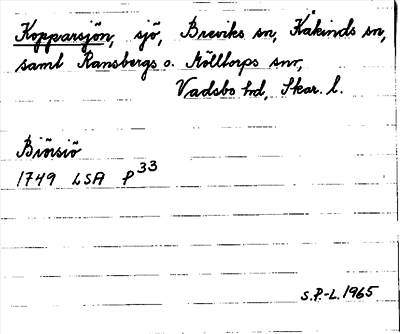 Kopparsjön, sjö, Breviks sn, Kåkinds sn,
samt Ransbergs o. Mölltorps snr,
Vadsbo hd, Skar. l.
Biörsiö
1749 LSA P 33
S.P.-L. 1965